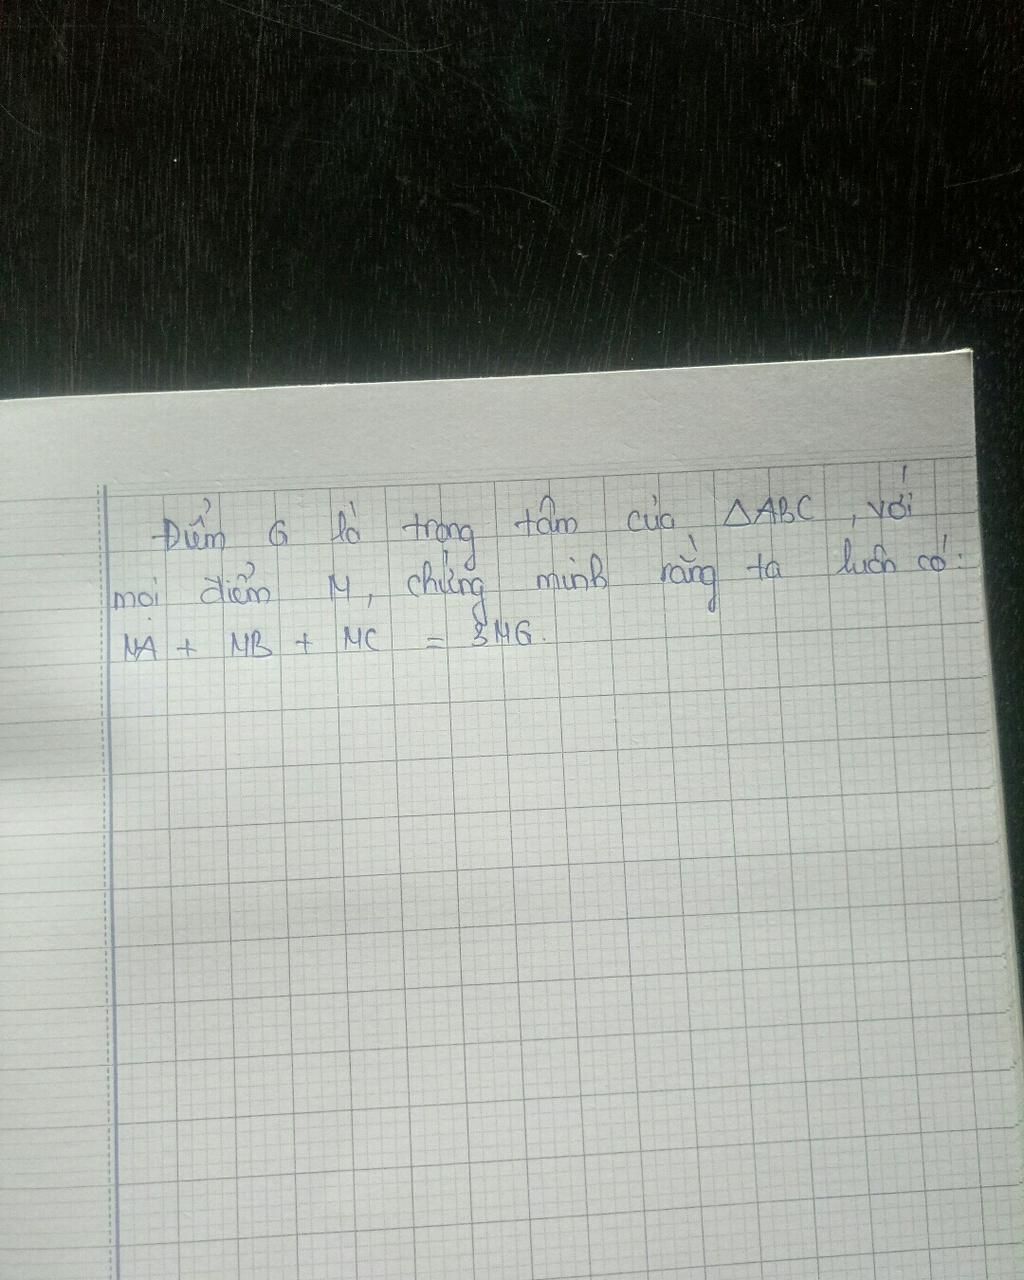 Điểm G là trọng tâm của △ABC, với
mọi điểm M, chứng minh rằng ta luôn có:
MA + MB + MC = 3MG.